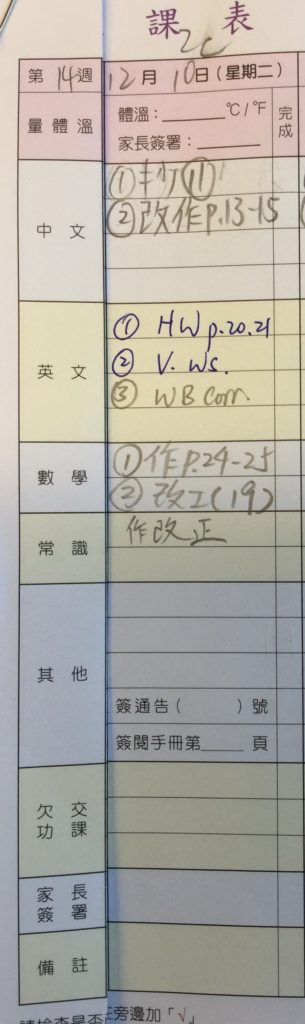 課 表
2C
第 14 週 12 月 10 日 (星期二)
量 體 溫 體溫:______ °C / °F 完成
家長簽署:______
中 文 ① 11
② 改作 p.13-15
英 文 ① HW p.20.21
② V. WS.
③ WB Corr.
數 學 ① 作 p.24-25
② 改工(19)
常 識 作改正
其 他
簽通告 ( ) 號
簽閱手冊第____ 頁
欠 交 功 課
家 長 簽 署
備 註
旁邊加「√」